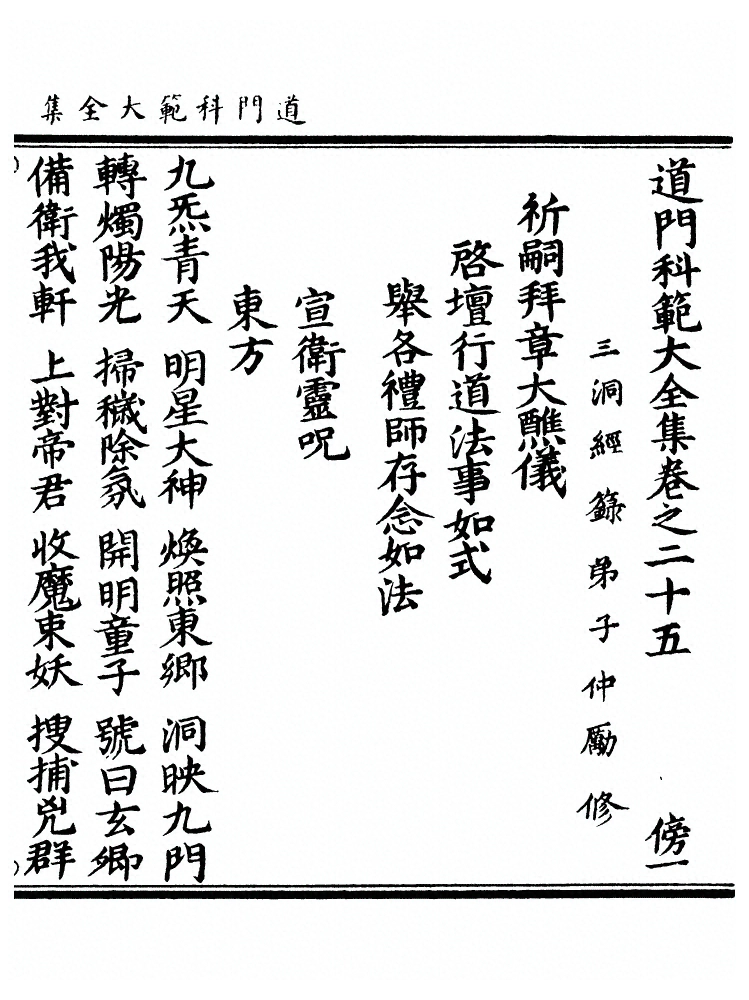 道門科範大全集
道門科範大全集卷之二十五 傍一
三洞經籙弟子仲勵修
祈嗣拜章大醮儀
啓壇行道法事如式
舉各禮師存念如法
宣衛靈呪
東方
九炁青天 明星大神 煥照東鄉 洞映九門
轉燭陽光 掃穢除氛 開明童子 號曰玄卿
備衛我軒 上對帝君 收魔束妖 搜捕兇群